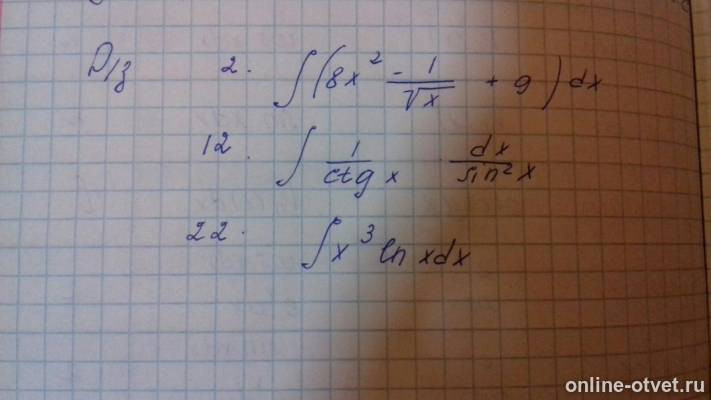 Д/з 2. ∫(8x² - 1/√x + 9)dx
12. ∫ 1/ctg x · dx/sin²x
22. ∫x³ ln x dx
online-otvet.ru